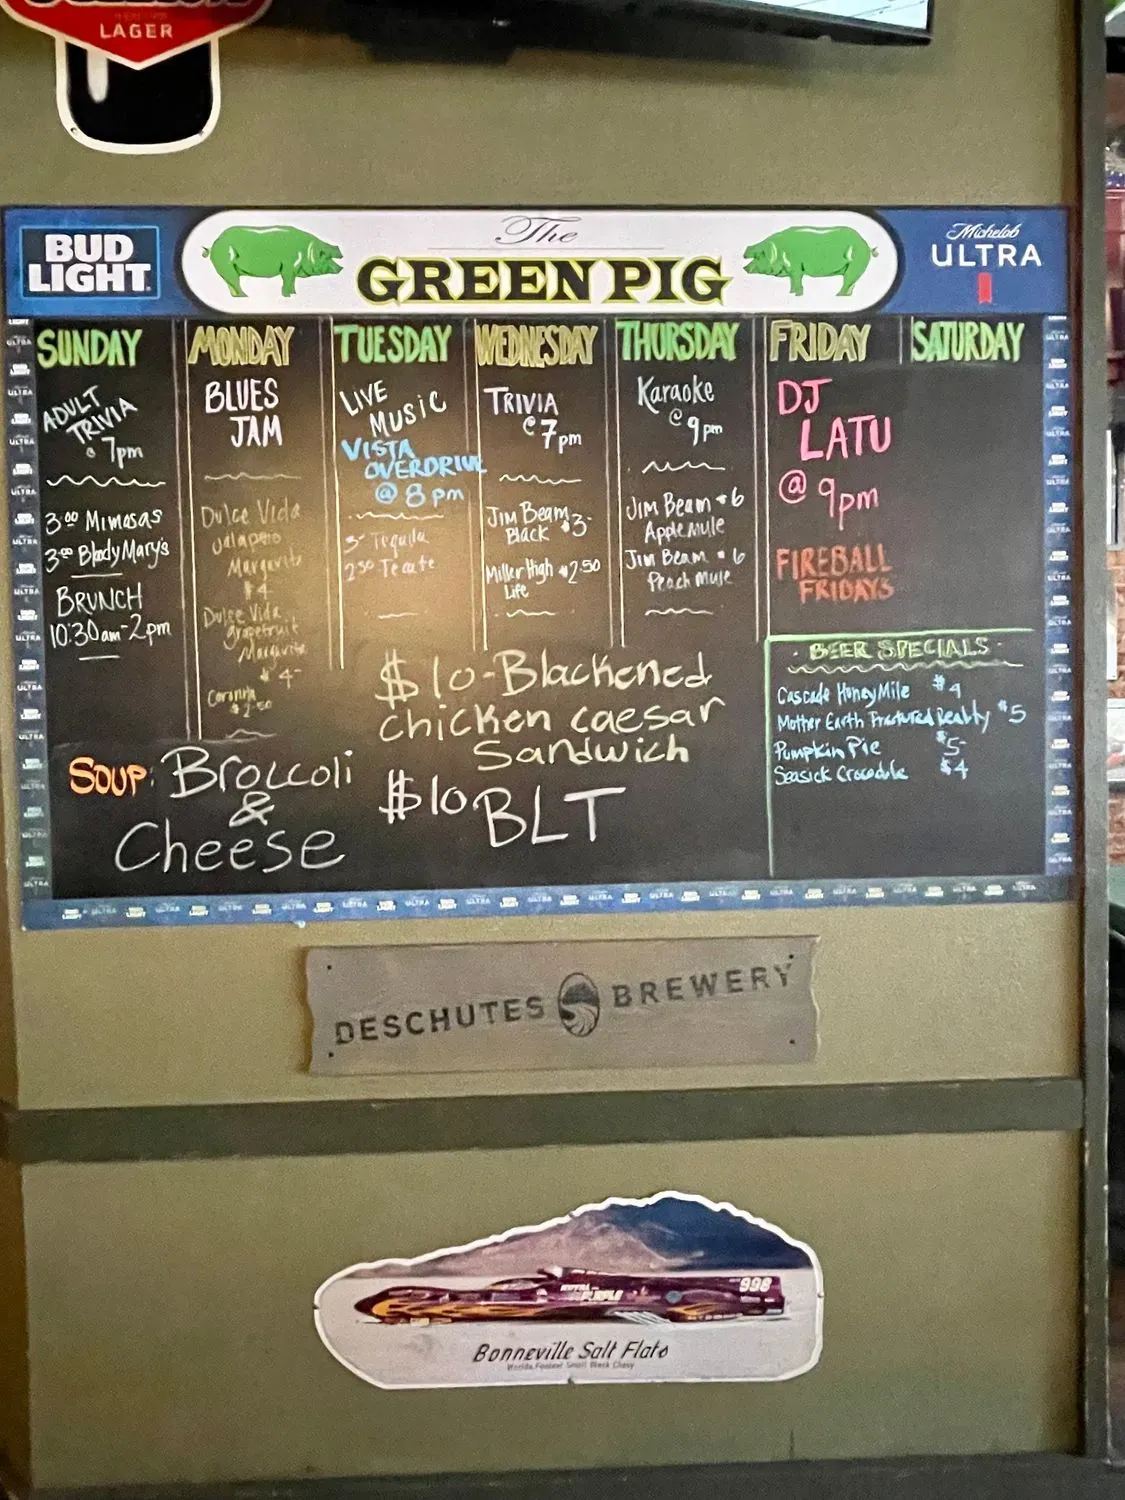 LAGER
BUD
LIGHT
The
GREEN PIG
Michelob
ULTRA
SUNDAY
ADULT
TRIVIA
@ 7pm
3.00 Mimosas
3.00 Bloody Mary's
BRUNCH
10:30am-2pm
MONDAY
BLUES
JAM
Dulce Vida
Jalapeño
Margarita
$4
Dulce Vida
grapefruit
Margarita
$4-
$2.50
TUESDAY
LIVE
MUSIC
VISTA
OVERDRIVE
@ 8pm
3- Tequila
2.50 Tecate
WEDNESDAY
TRIVIA
@ 7pm
Jim Beam
Black $3-
Miller High $2.50
Life
THURSDAY
Karaoke
@ 9pm
Jim Beam $6
Apple mule
Jim Beam $6
Peach Mule
FRIDAY
DJ
LATU
@ 9pm
FIREBALL
FRIDAYS
SATURDAY
SOUP: Broccoli
&
Cheese
$10-Blackened
chicken caesar
Sandwich
$10 BLT
BEER SPECIALS
Cascade Honey Mile $4
Mother Earth Fractured Reality $5
Pumpkin Pie $5-
Seasick Crocodile $4
DESCHUTES BREWERY
998
Bonneville Salt Flats